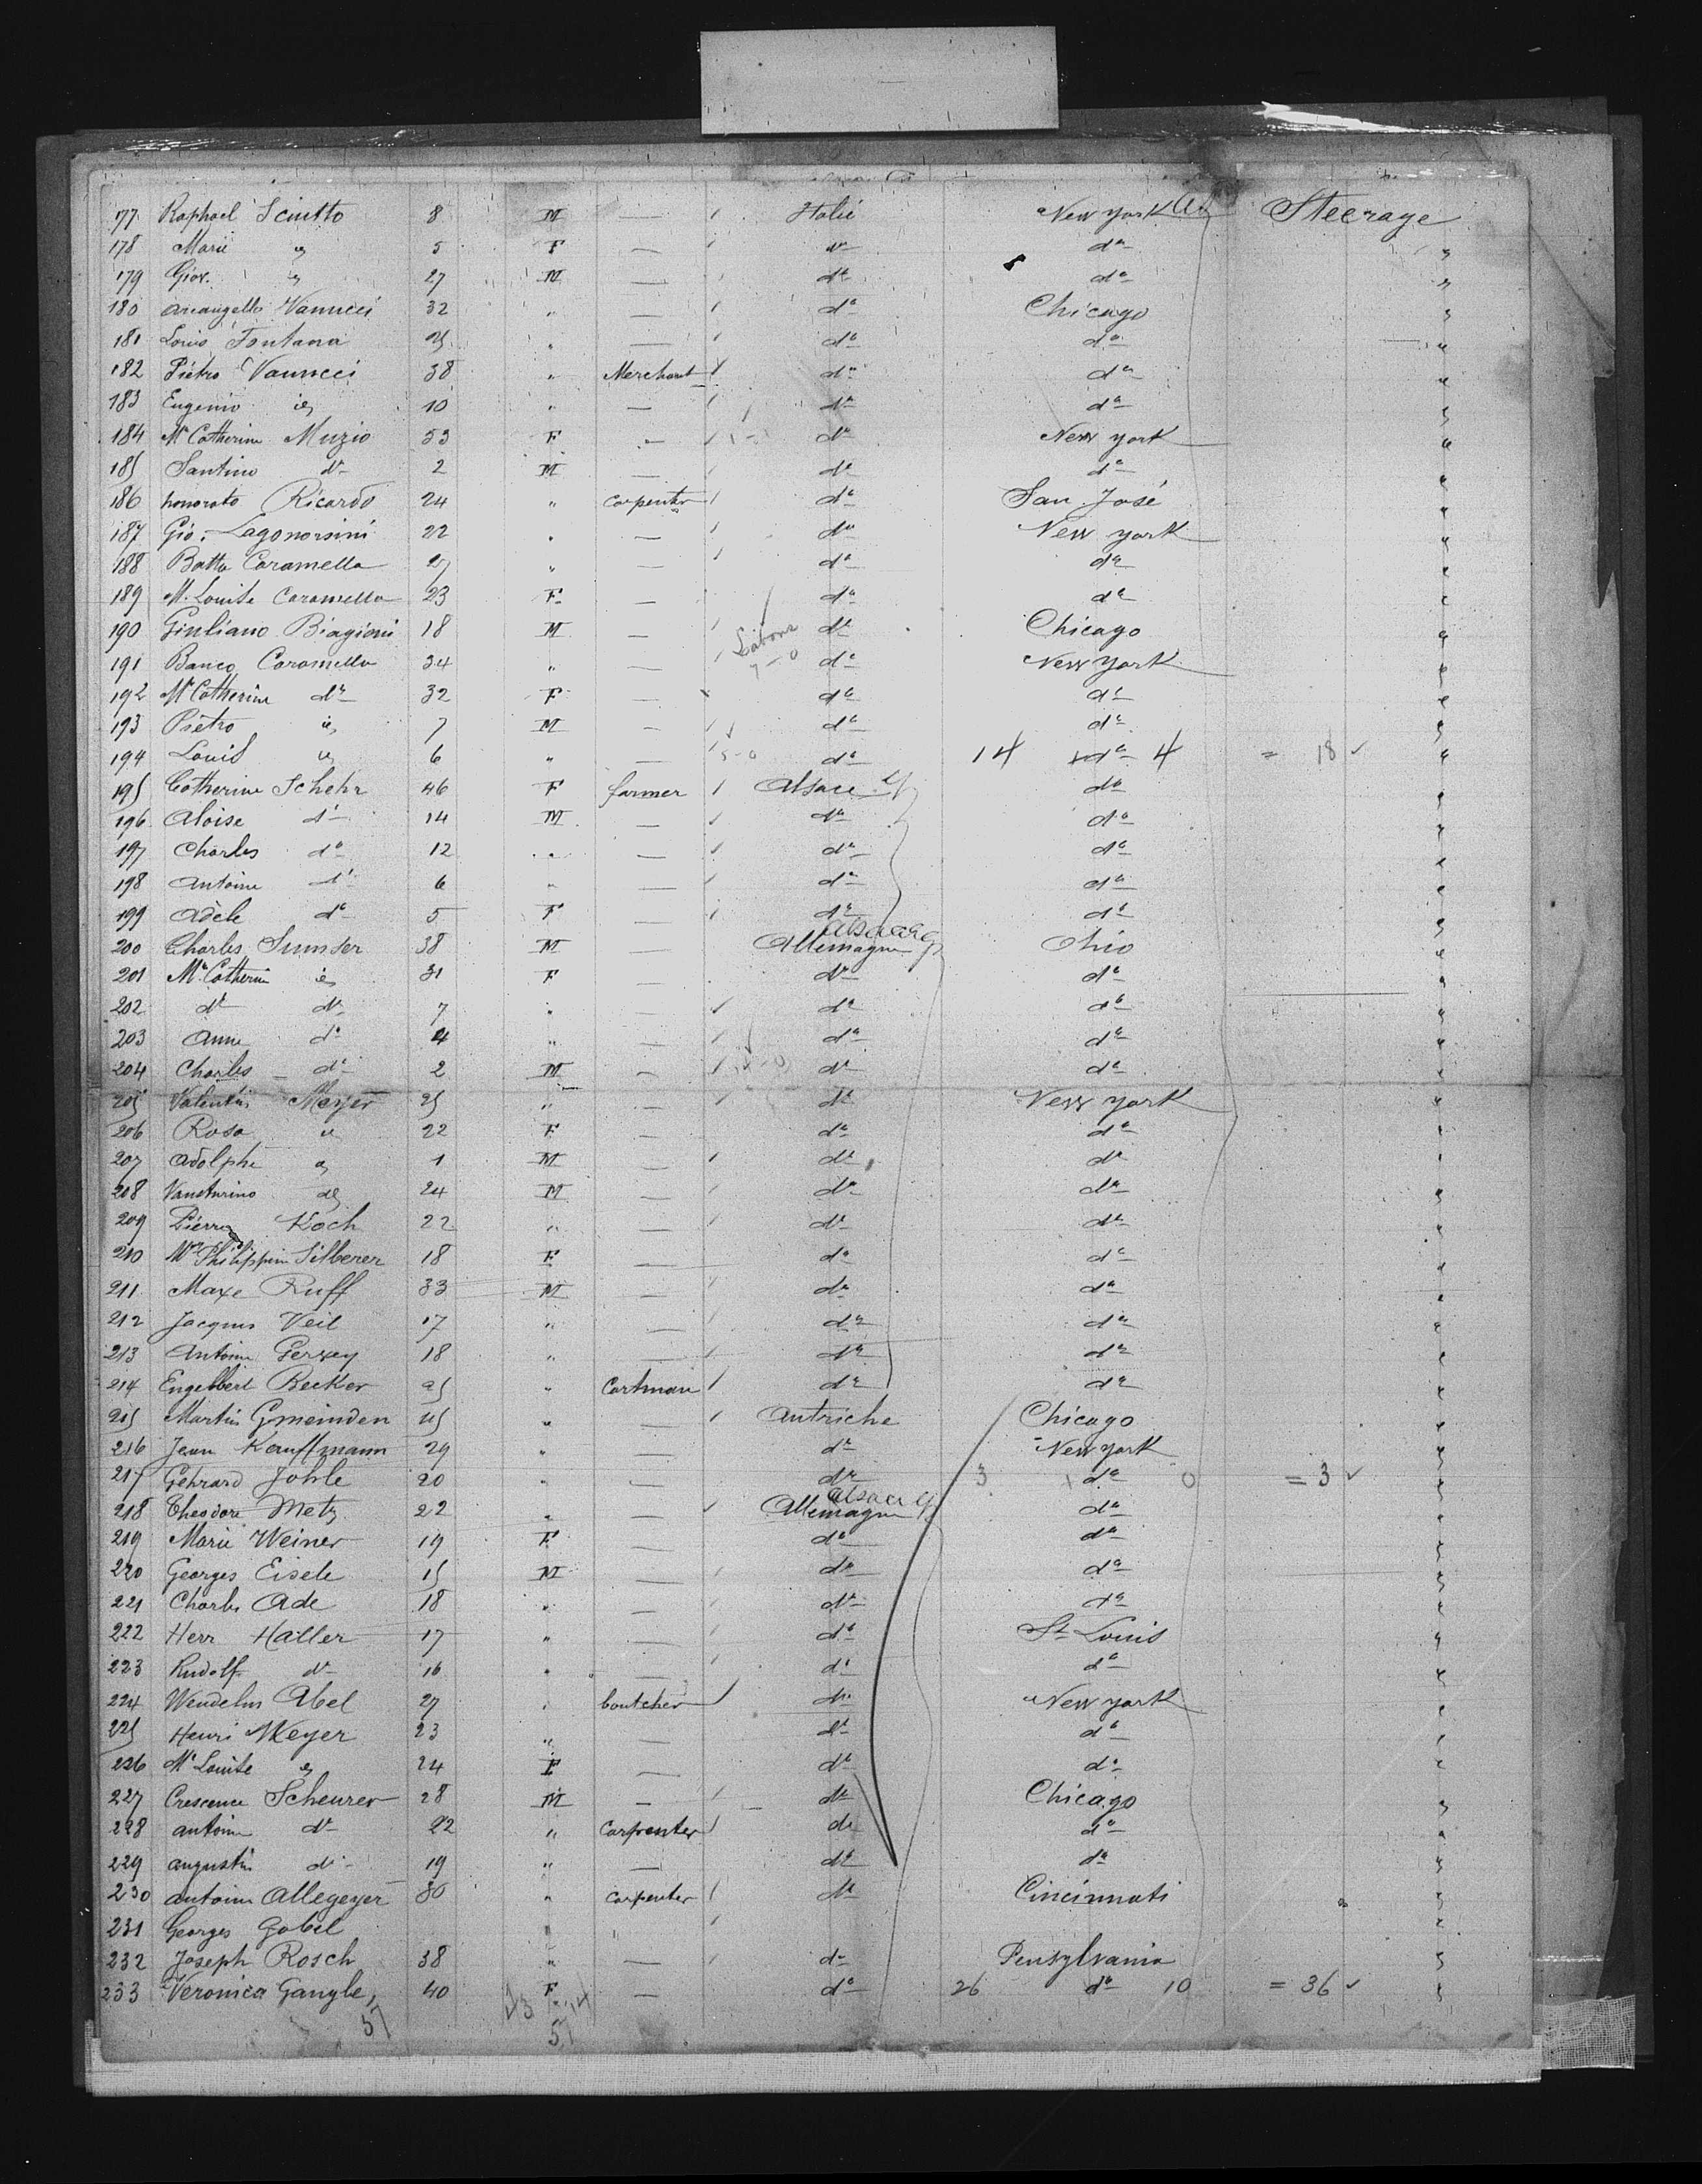 177 Raphael Sciutto 8 M — Italie New York Steerage
178 Marie " 5 F — do do "
179 Giov. " 27 M — do do "
180 Arcangello Vannucci 32 " — do Chicago "
181 Louis Fontana 25 " — do do "
182 Piétro Vannucci 38 " Merchant do do "
183 Eugenio id 10 " — do do "
184 Me Catherine Muzio 53 F — do New York "
185 Santino do 2 M — do do "
186 honorato Ricardo 24 " carpenter do San José "
187 Gio: Lagonorsini 22 " — do New York "
188 Batta Caramella 27 " — do do "
189 M. Louise Caramella 23 F — do do "
190 Giuliano Biagioni 18 M — do Chicago "
191 Banco Caramella 34 " — do New York "
192 Me Catherine do 32 F do do "
193 Piétro id 7 M — do do "
194 Louis id 6 " — 5-0 do 14 do 4 = 18 "
195 Catherine Schehr 46 F farmer Alsace do "
196 Aloise do 14 M — do do "
197 Charles do 12 " — do do "
198 Antoine do 6 " — do do "
199 Adèle do 5 F — do do "
Alsace
200 Charles Sumser 38 M — Allemagne Ohio "
201 Me Catherine id 31 F — do do "
202 do do 7 " — do do "
203 Anne do 4 " — do do "
204 Charles do 2 M — do do "
205 Valentin Meyer 25 " — do New York "
206 Rosa " 22 F — do do "
207 Adolphe " 1 M — do do "
208 24 M — do do "
209 Pierre Koch 22 " — do do "
210 Philippine Silberer 18 F — do do "
211 Maxe Ruff 33 M — do do "
212 Jacques Veil 17 " — do do "
213 Antoine 18 " — do do "
214 Engelbert Becker 25 " Cartman do do "
215 Martin Gmeinden 45 " — Autriche Chicago "
216 Jean Kauffmann 29 " — do New York "
217 Gehrard Johle 20 " — do 3 do 0 = 3 "
Alsace
218 Theodore Metz 22 " — Allemagne do "
219 Marie Weiner 19 F — do do "
220 Georges Eisele 15 M — do do "
221 Charles Ade 18 " — do do "
222 Herr Haller 17 " — do St Louis "
223 Rudolf do 16 " — do do "
224 Wendelin Abel 27 " boutcher do New York "
225 Henri Meyer 23 " — do do "
226 Me Louise " 24 F — do do "
227 Crescence Scheurer 28 M — do Chicago "
228 antoine do 22 " Carpenter do do "
229 augustin do 19 " — do do "
230 antoine Allegeyer 30 " carpenter do Cincinnati "
231 Georges Gobel "
232 Joseph Rosch 38 " — do Pensylvania "
233 Veronica Gangle 40 F — do 26 do 10 = 36 "
57 43 14
57